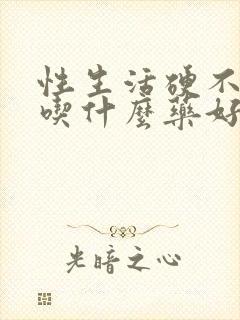 性生活硬不
喫什麼藥好
光暗之心